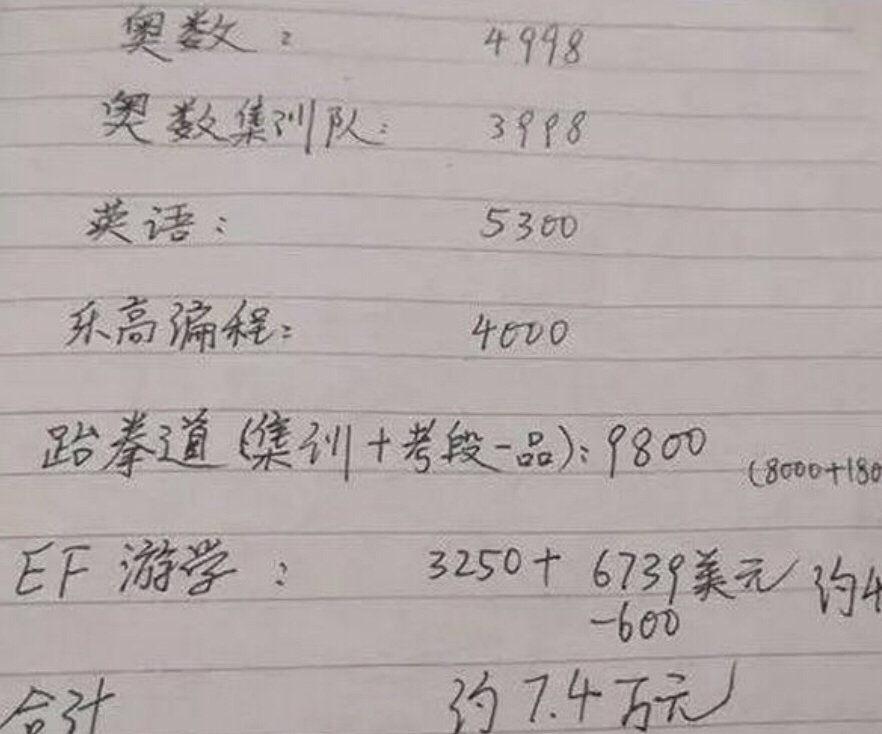 奥数: 4998
奥数集训队: 3998
英语: 5300
乐高编程: 4000
跆拳道(集训+考段一品): 9800 (8000+180
EF 游学: 3250+ 6739美元 约4
-600
合计 约7.4万元